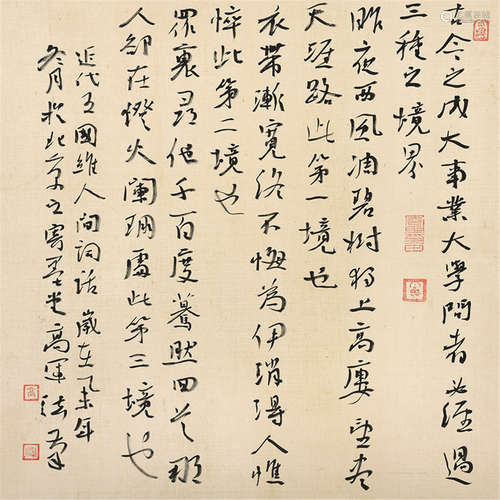 古今之成大事業大學問者必經過
三種之境界
昨夜西風凋碧樹獨上高廔望盡
天涯路此第一境也
衣帶漸寬終不悔為伊消得人憔
悴此第二境也
眾裏尋他千百度驀然回首那
人卻在燈火闌珊處此第三境也
近代王國維人間詞話 歲在 未年
冬月於北京之寄 堂高軍法